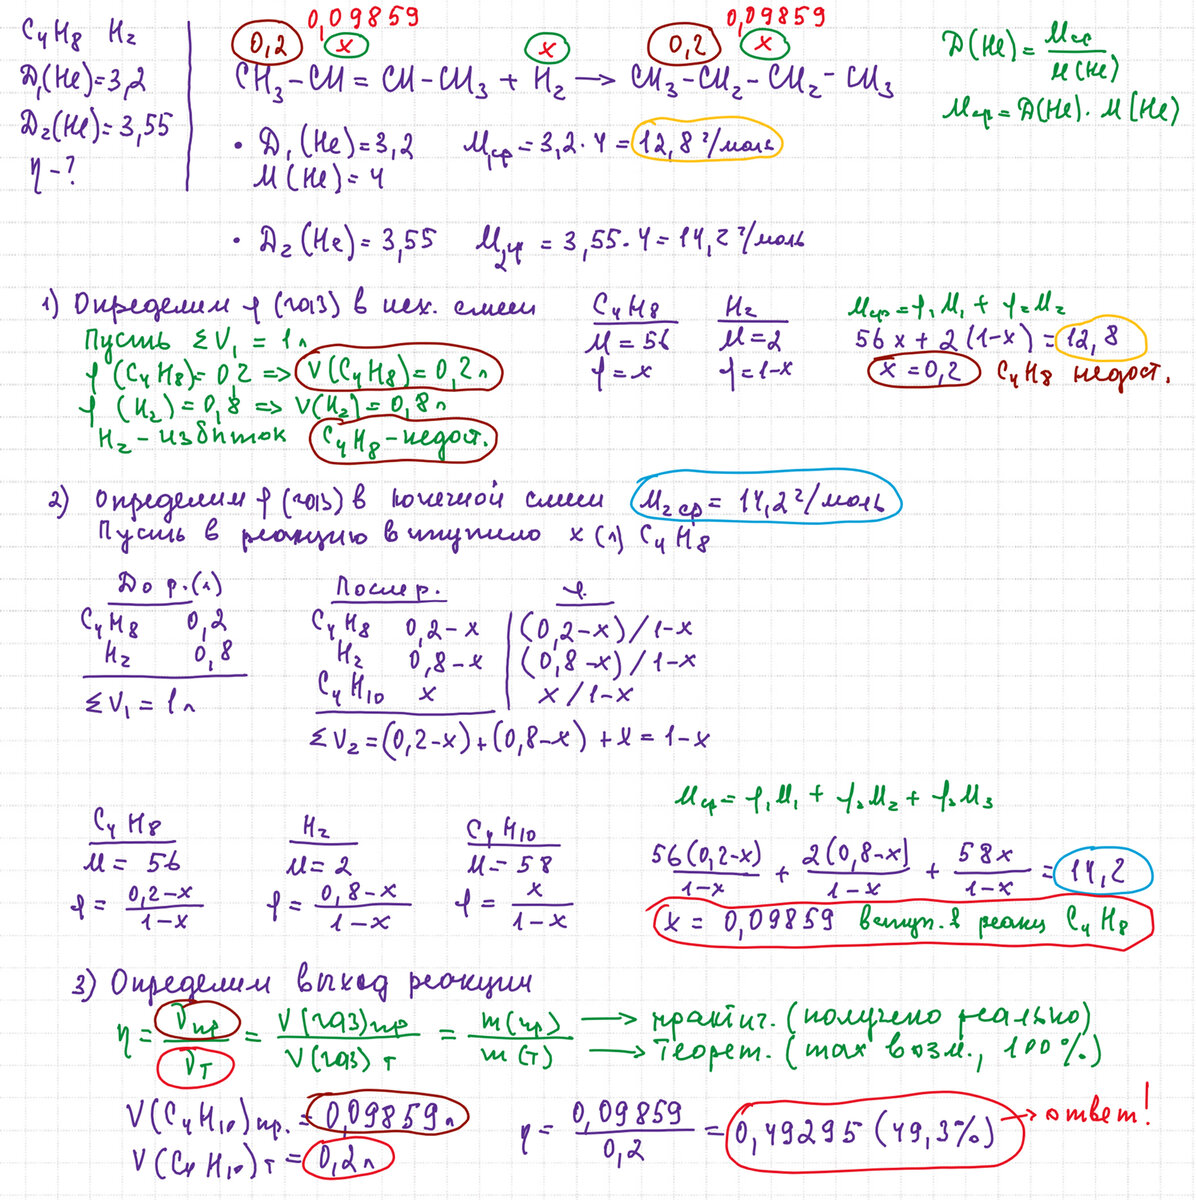 C₄H₈ H₂
D₁(He)=3,2
D₂(He)=3,55
η-?
0,09859
0,09859
0,2 x x 0,2 x
CH₃-CH=CH-CH₃ + H₂ → CH₃-CH₂-CH₂-CH₃
D(He)=Mср/M(He)
Mср=D(He)·M(He)
• D₁(He)=3,2 M₁ср=3,2·4=12,8 г/моль
M(He)=4
• D₂(He)=3,55 M₂ср=3,55·4=14,2 г/моль
1) Определим φ(газ) в исх. смеси
Пусть ΣV₁=1л
φ(C₄H₈)=0,2 => V(C₄H₈)=0,2л
φ(H₂)=0,8 => V(H₂)=0,8л
H₂-избыток C₄H₈-недост.
C₄H₈ H₂
M=56 M=2
φ=x φ=1-x
Mср=φ₁M₁+φ₂M₂
56x+2(1-x)=12,8
x=0,2 C₄H₈ недост.
2) Определим φ(газ) в конечной смеси M₂ср=14,2 г/моль
Пусть в реакцию вступило x(л) C₄H₈
До р.(л)
C₄H₈ 0,2
H₂ 0,8
ΣV₁=1л
После р. φ
C₄H₈ 0,2-x (0,2-x)/1-x
H₂ 0,8-x (0,8-x)/1-x
C₄H₁₀ x x/1-x
ΣV₂=(0,2-x)+(0,8-x)+x=1-x
C₄H₈ H₂ C₄H₁₀
M=56 M=2 M=58
φ=0,2-x/1-x φ=0,8-x/1-x φ=x/1-x
Mср=φ₁M₁+φ₂M₂+φ₃M₃
56(0,2-x)/1-x + 2(0,8-x)/1-x + 58x/1-x = 14,2
x=0,09859 вступ. в реакц C₄H₈
3) Определим выход реакции
η=νпр/νт=V(газ)пр/V(газ)т=m(пр)/m(т)
→ практич. (получено реально)
→ теорет. (max возм., 100%)
V(C₄H₁₀)пр.=0,09859л
V(C₄H₁₀)т=0,2л
η=0,09859/0,2=0,49295(49,3%) → ответ!